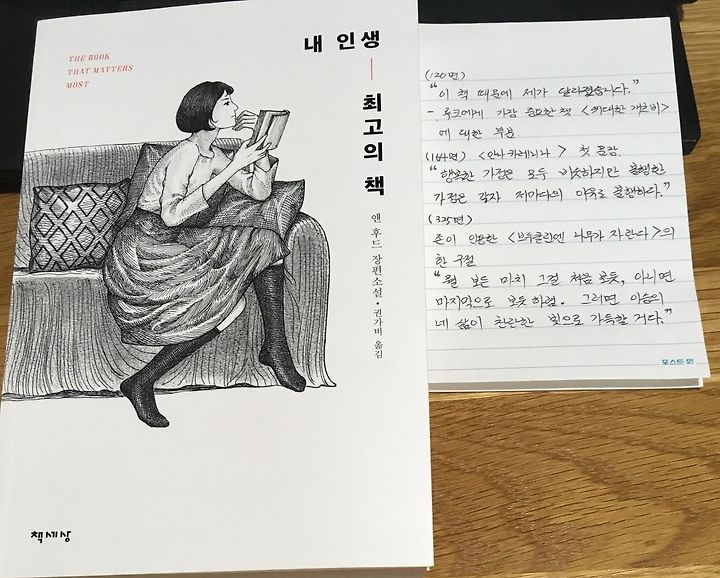 THE BOOK
THAT MATTERS
MOST
내 인생
최고의 책
앤 후드 장편소설 • 권가비 옮김
책세상
(120면)
“이 책 때문에 제가 달라졌습니다.”
- 루크에게 가장 중요한 책 <위대한 개츠비>
에 대한 부분.
(164면) <안나 카레니나> 첫 문장.
“행복한 가정은 모두 비슷하지만 불행한
가정은 각자 저마다의 이유로 불행하다.”
(325면)
존이 인용한 <브루클린엔 나무가 자란다>의
한 구절
“뭘 보든 마치 그걸 처음 보듯, 아니면
마지막으로 보듯 하렴. 그러면 이승의
네 삶이 찬란한 빛으로 가득할 거다.”
포스트-잇